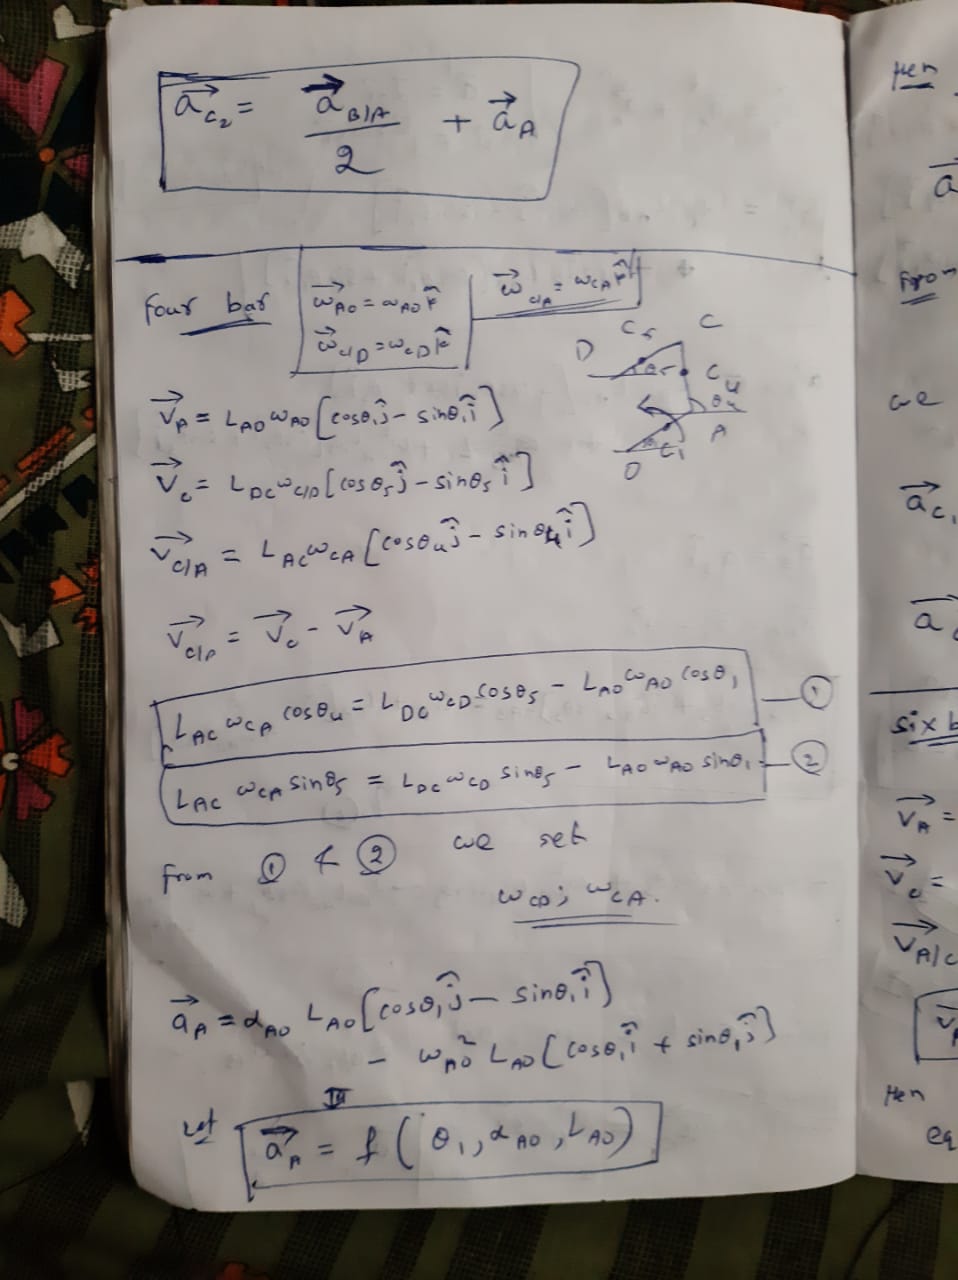 a⃗_C₂ = a⃗_B/A / 2 + a⃗_A
Four bar
ω⃗_AO = ω_AO k̂
ω⃗_C/D = ω_CD k̂
ω⃗_C/A = ω_CA k̂
C₅ C
D θ₅ C₄
θ₄
A
θ₁ C₁
O
V⃗_A = L_AO ω_AO [cosθ₁ĵ - sinθ₁î]
V⃗_C = L_DC ω_C/D [cosθ₅ĵ - sinθ₅î]
V⃗_C/A = L_AC ω_CA [cosθ₄ĵ - sinθ₄î]
V⃗_C/A = V⃗_C - V⃗_A
L_AC ω_CA cosθ₄ = L_DC ω_CD cosθ₅ - L_AO ω_AO cosθ₁ — ①
L_AC ω_CA sinθ₅ = L_DC ω_CD sinθ₅ - L_AO ω_AO sinθ₁ — ②
From ① & ② we get
ω_CD; ω_CA.
a⃗_A = α_AO L_AO [cosθ₁ĵ - sinθ₁î]
- ω_AO² L_AO [cosθ₁î + sinθ₁ĵ]
Let a⃗_A = f(θ₁, α_AO, L_AO)
Hen
a⃗
From
we
a⃗_C₁
a⃗
six b
V⃗_A =
V⃗_C =
V⃗_A/C
Hen
eq